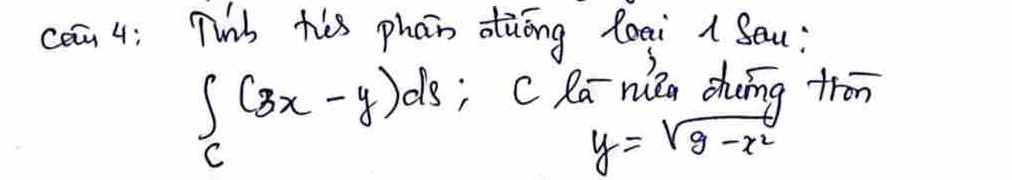 Câu 4: Tính tích phân đường loại 1 sau:
∫_C (3x - y)ds; C là nửa đường tròn
y = √(9 - x²)